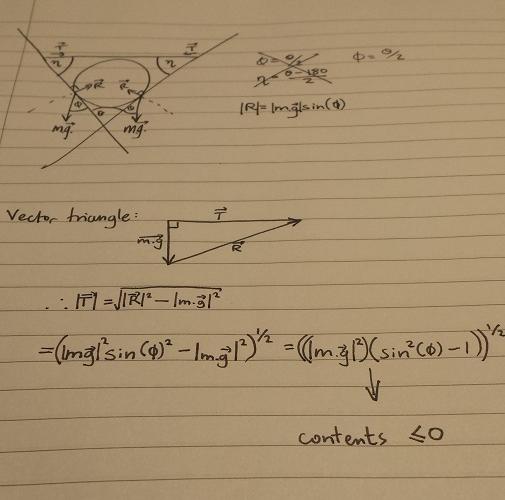 T⃗ T⃗
η η
R⃗ R⃗
Φ θ Φ
mg⃗ mg⃗
Φ = θ/2
|R⃗| = |mg⃗|sin(Φ)
Vector triangle:
T⃗
m.g⃗
R⃗
∴ |T⃗| = √|R⃗|² − |m.g⃗|²
= (|mg⃗|² sin(Φ)² − |m.g⃗|²)^1/2 = ((|m.g⃗|²)(sin²(Φ) − 1))^1/2
contents ≤0